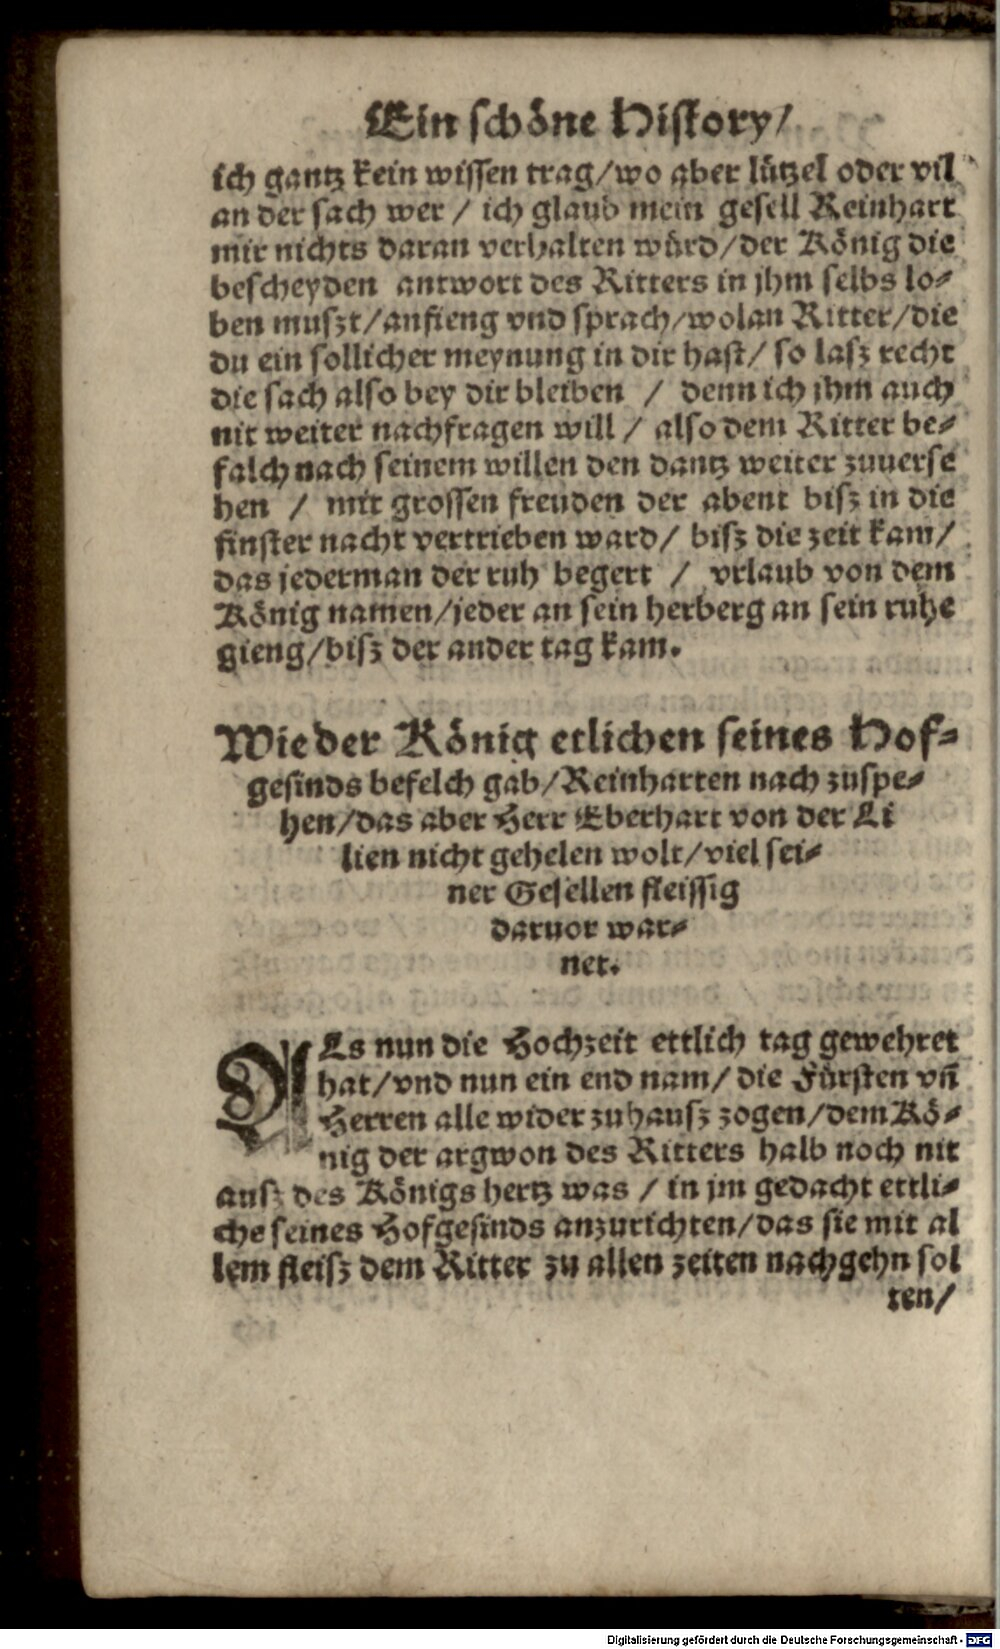 Ein schöne History/
ich gantz kein wissen trag/wo aber lützel oder vil
an der sach wer / ich glaub mein gesell Reinhart
mir nichts daran verhalten würd/der König die
bescheyden antwort des Ritters in jhm selbs lo-
ben muszt/anfieng vnd sprach/wolan Ritter/die
du ein sollicher meynung in dir hast/ so lasz recht
die sach also bey dir bleiben / denn ich jhm auch
nit weiter nachfragen will / also dem Ritter be-
falch nach seinem willen den dantz weiter zuuerse
hen / mit grossen freuden der abent bisz in die
finster nacht vertrieben ward/ bisz die zeit kam/
das jederman der ruh begert / vrlaub von dem
König namen/jeder an sein herberg an sein ruhe
gieng/bisz der ander tag kam.
Wie der König etlichen seines Hof-
gesinds befelch gab/Reinharten nach zuspe-
hen/das aber Herr Eberhart von der Li
lien nicht gehelen wolt/viel sei-
ner Gesellen fleissig
daruor war-
net.
ALs nun die Hochzeit ettlich tag gewehret
hat/vnd nun ein end nam/ die Fürsten vñ
Herren alle wider zuhausz zogen/dem Kö-
nig der argwon des Ritters halb noch nit
ausz des Königs hertz was / in jm gedacht ettli-
che seines Hofgesinds anzurichten/das sie mit al
lem fleisz dem Ritter zu allen zeiten nachgehn sol
ten/
Digitalisierung gefördert durch die Deutsche Forschungsgemeinschaft - DFG